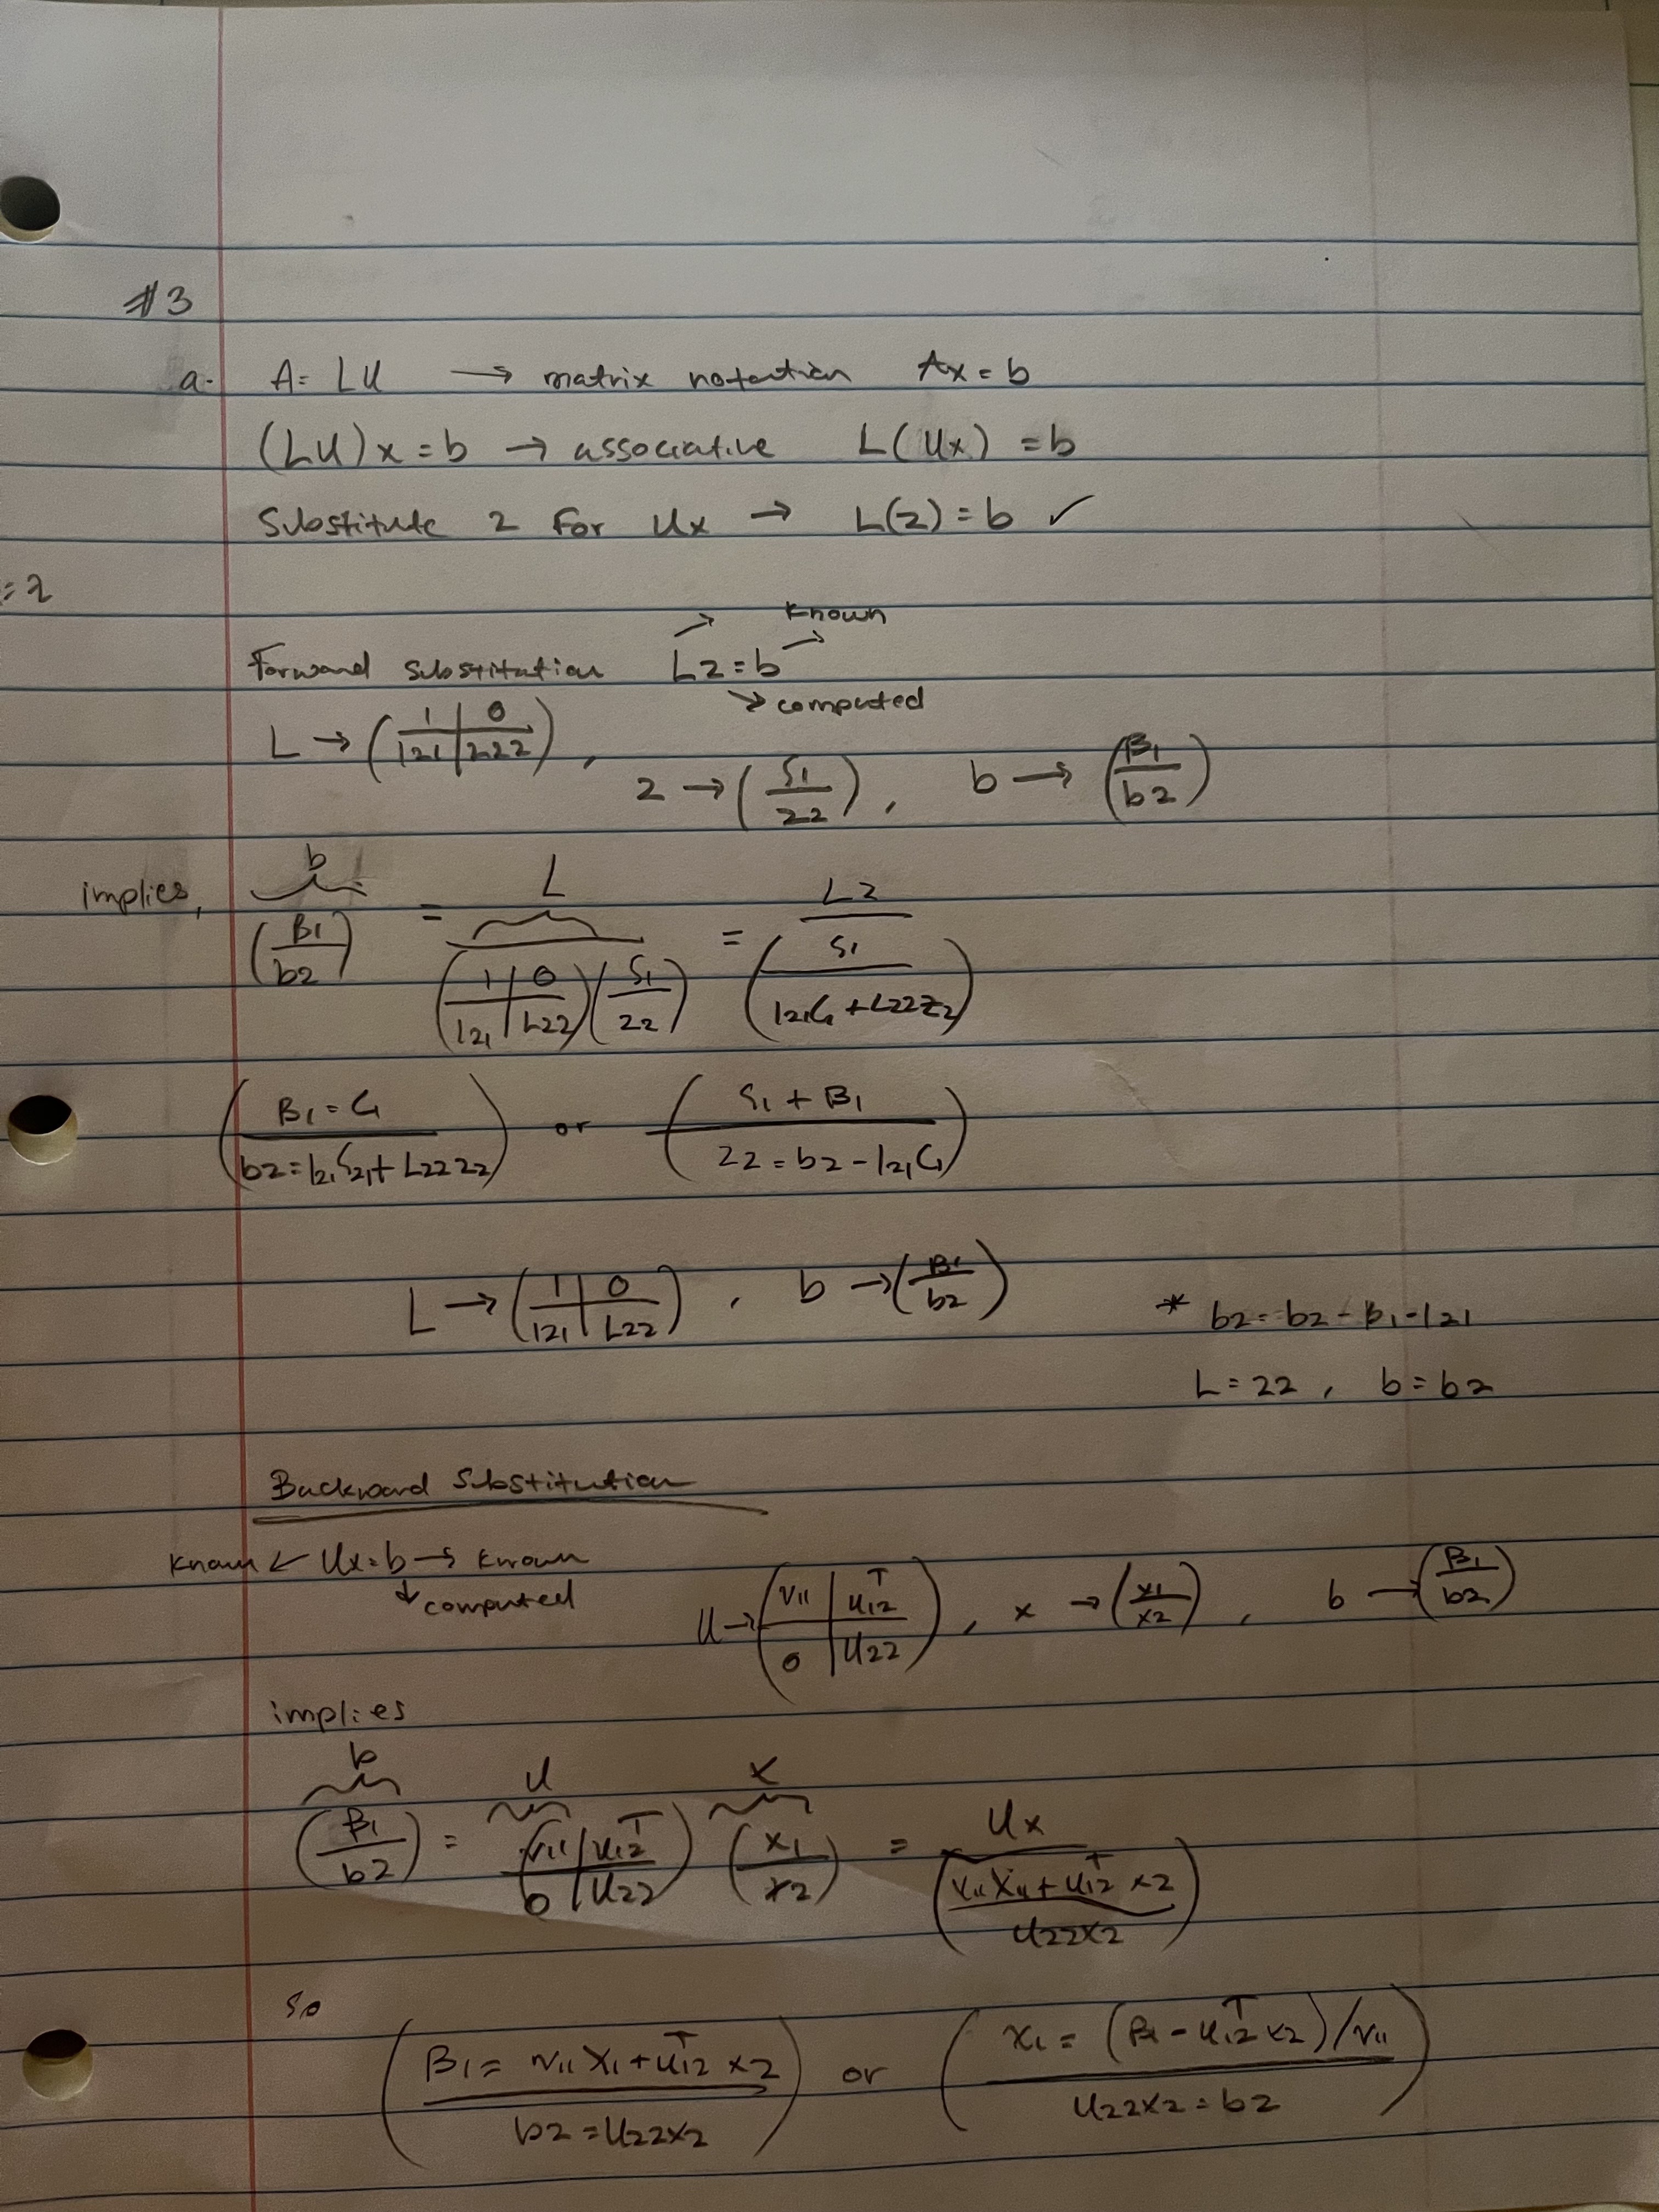 #3
a. A = LU → matrix notation Ax = b
(LU)x = b → associative L(Ux) = b
Substitute z for Ux → L(z) = b ✓
= z
Known
Forward substitution Lz = b
→ computed
L → (1 | 0 / l21 | L22), z → (ζ1 / z2), b → (β1 / b2)
implies, b L Lz
(β1 / b2) = (1 | 0 / l21 | L22)(ζ1 / z2) = (ζ1 / l21ζ1 + L22z2)
(β1 = ζ1 / b2 = l21ζ21 + L22z2) or (ζ1 + β1 / z2 = b2 - l21ζ1)
L → (1 | 0 / l21 | L22), b → (β1 / b2)
* b2 = b2 - β1 - l21
L = 22, b = b2
Backward Substitution
Known ← Ux = b → Known
↓ computed
U → (v11 | u12^T / 0 | U22), x → (x1 / x2), b → (β1 / b2)
implies
b U x Ux
(β1 / b2) = (v11 | u12^T / 0 | U22) (x1 / x2) = (v11x11 + u12^T x2 / U22x2)
so
(β1 = v11x1 + u12^T x2 / b2 = U22x2) or (x1 = (β1 - u12^T x2)/v11 / U22x2 = b2)